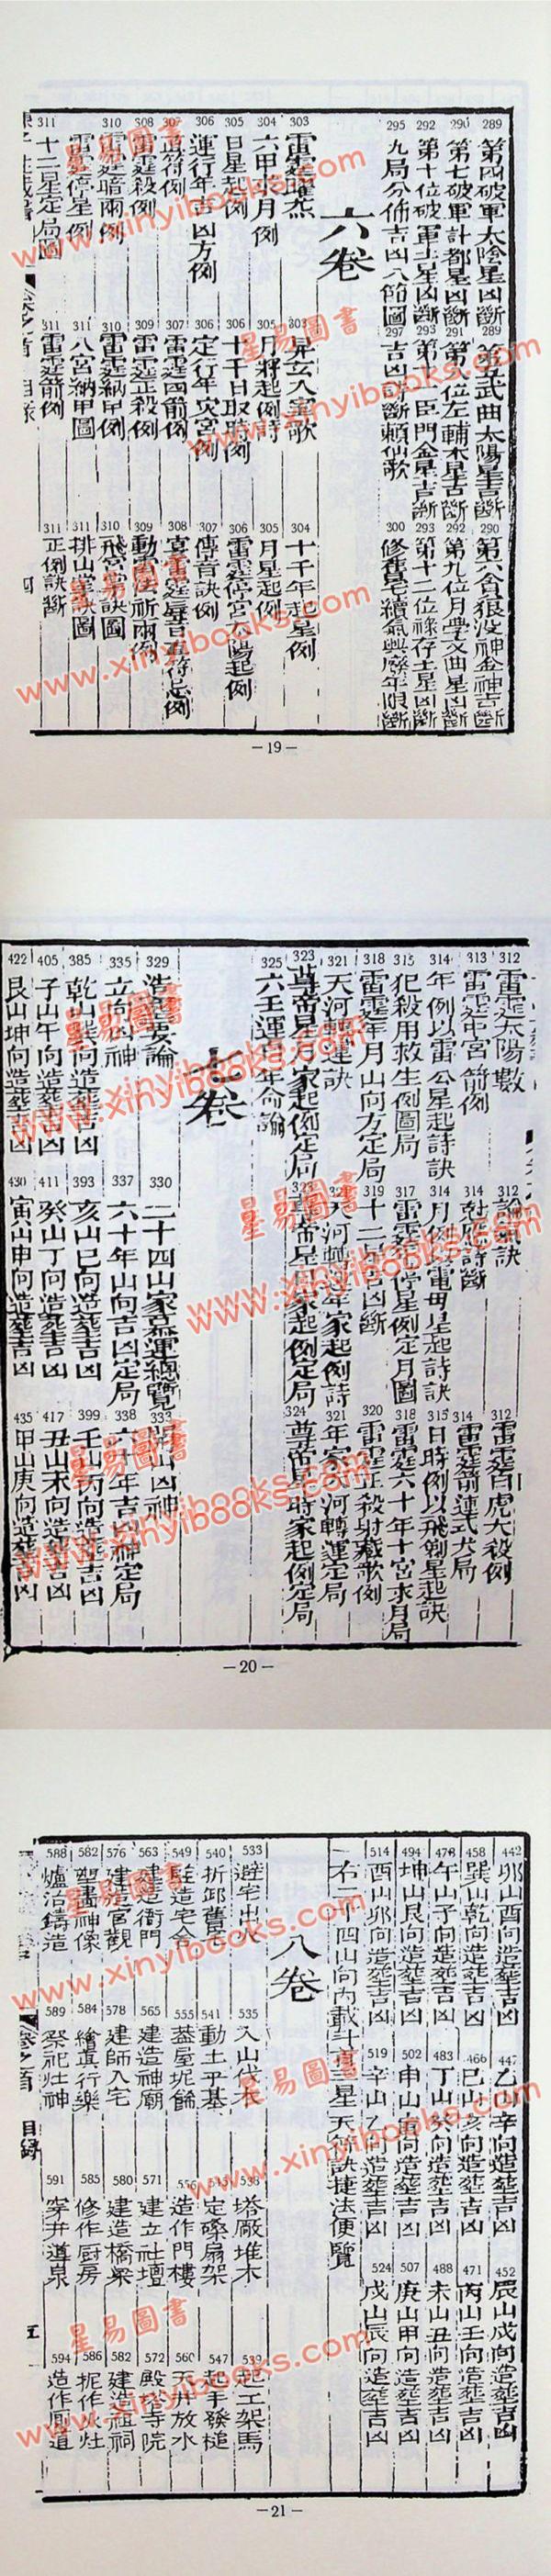 289
第四破軍太陰星凶斷
289
第五武曲太陽星吉斷
290
第六貪狼没神金神吉斷
290
第七破軍計都星凶斷
291
第八位左輔木星吉斷
292
第九位月孛文曲星凶斷
292
第十位破軍土星凶斷
293
第十一巨門金星吉斷
293
第十二位祿存土星凶斷
295
九局分佈吉凶八節圖
297
吉凶斷賴仙歌
300
修舊宅續氣興廢年限斷
六卷
303
303
304
十千年起星例
304
例
305
月將起例詩
305
月星起例
305
306
十干日取時例
306
雷霆停宮太陽起例
306
運行年吉凶方例
306
定行年灾宮例
307
傳音訣例
307
307
雷霆四箭例
308
308
雷霆殺例
309
雷霆正殺例
309
310
雷霆暗兩例
310
雷霆納甲例
310
飛宮訣圖
311
雷霆停星例
311
八宮納甲圖
311
排山掌訣圖
311
十二星定局圖
311
雷霆箭例
311
正例訣斷
目錄
四
—19—
312
雷霆太陽數
312
論訣
312
雷霆白虎大殺例
313
雷霆中宮箭例
314
314
314
年例以雷公星起詩訣
314
月例以電母星起詩訣
315
日時例以飛劍星起訣
315
犯殺用救生例圖局
317
雷霆停星例定月圖
318
雷霆六十年十宮求月局
318
雷霆年月山向方定局
319
320
雷霆正殺射藏歌例
321
天河轉運訣
321
年家天河轉運定局
323
尊帝星月家起例定局
324
尊帝星時家起例定局
325
六壬運身年命論
七卷
329
造要論
330
二十四山家墓運總覽
333
開山凶神
335
立向凶神
337
六十年山向吉凶定局
338
六十年吉凶神定局
385
乾山巽向造葬吉凶
393
亥山巳向造葬吉凶
399
壬山丙向造葬吉凶
405
子山午向造葬吉凶
411
癸山丁向造葬吉凶
417
丑山未向造葬吉凶
422
艮山坤向造葬吉凶
430
寅山申向造葬吉凶
435
甲山庚向造葬吉凶
—20—
442
卯山酉向造葬吉凶
447
乙山辛向造葬吉凶
452
辰山戌向造葬吉凶
458
巽山乾向造葬吉凶
466
巳山亥向造葬吉凶
471
丙山壬向造葬吉凶
478
午山子向造葬吉凶
483
丁山癸向造葬吉凶
488
未山丑向造葬吉凶
494
坤山艮向造葬吉凶
502
申山寅向造葬吉凶
507
庚山甲向造葬吉凶
514
酉山卯向造葬吉凶
519
辛山乙向造葬吉凶
524
戌山辰向造葬吉凶
右二十四山向內載斗首星天符訣捷法便覽
八卷
533
避宅出火
535
入山伐木
538
塔厰堆木
539
起工架馬
540
折卸舊宅
541
動土平基
543
定磉扇架
547
起手發槌
549
豎造宅舍
555
蓋屋坭餙
556
造作門樓
560
天井放水
563
建造衙門
565
建造神廟
571
建立社壇
572
殿塔寺院
576
建造宮觀
578
建師入宅
580
建造橋梁
582
建造祖祠
582
塑畫神像
584
繪真行樂
585
修作厨房
586
坭作灶
588
爐冶鑄造
589
祭祀灶神
591
穿井導泉
594
造作厠道
卷之首
目錄
五
—21—
星易圖書
www.xinyibooks.com
星易圖書
www.xinyibooks.com
星易圖書
www.xinyibooks.com
星易圖書
www.xinyibooks.com
星易圖書
www.xinyibooks.com
星易圖書
www.xinyibooks.com
星易圖書
www.xinyibooks.com
星易圖書
www.xinyibooks.com
星易圖書
www.xinyibooks.com